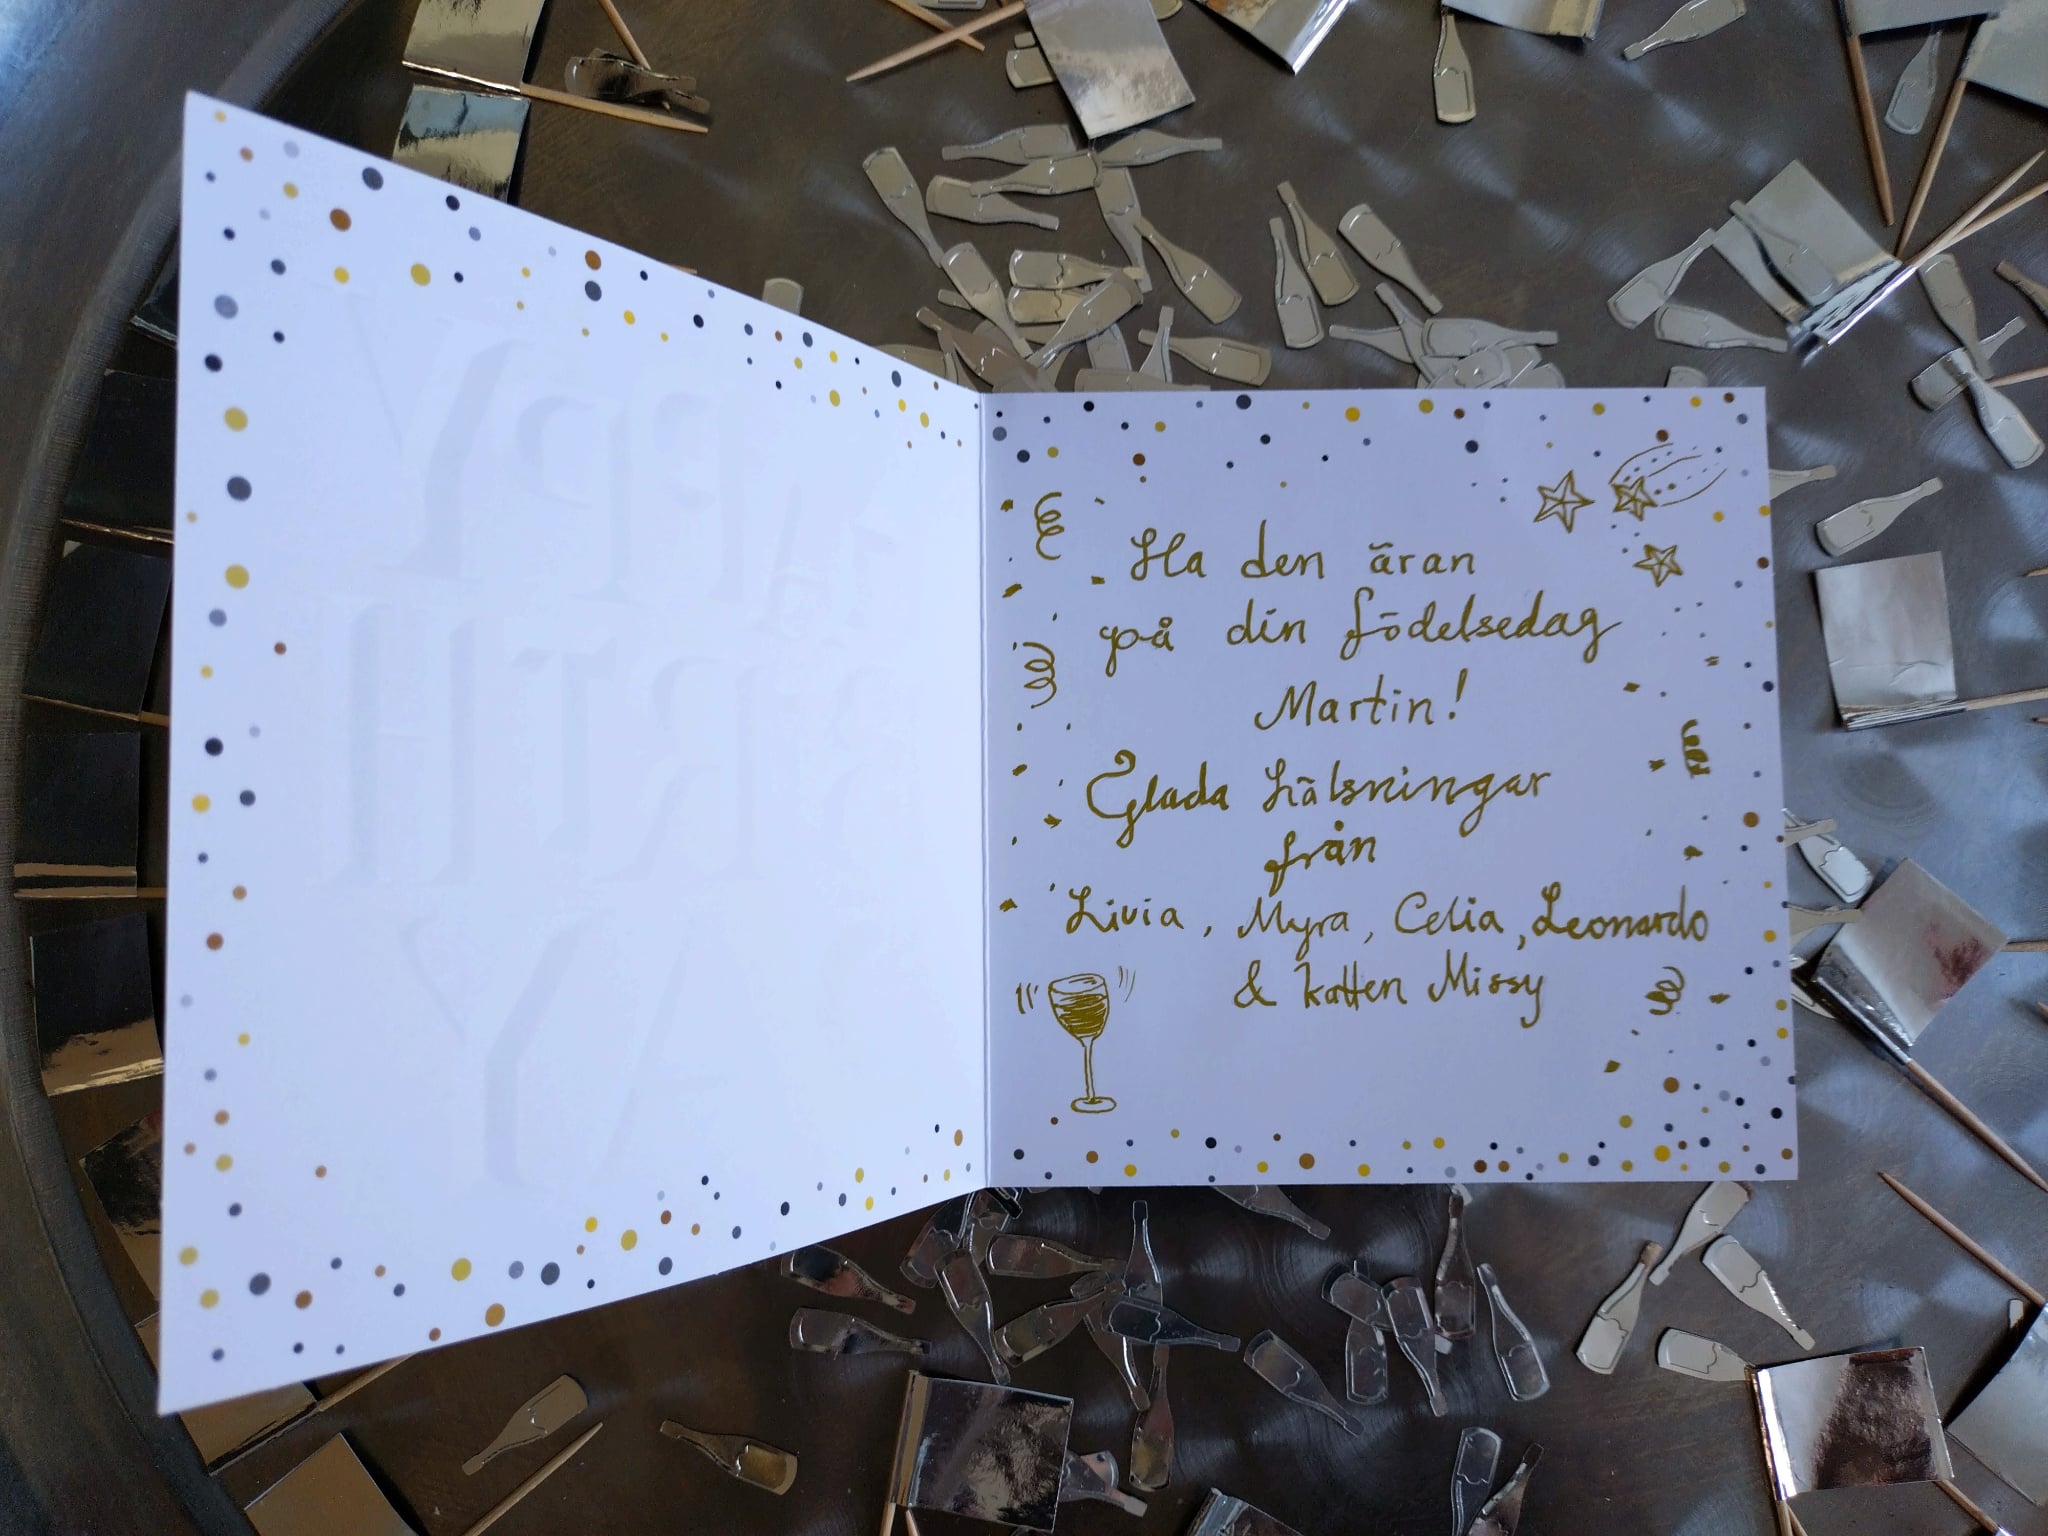 Ha den äran
på din födelsedag
Martin!
Glada hälsningar
från
Livia, Myra, Celia, Leonardo
& katten Missy